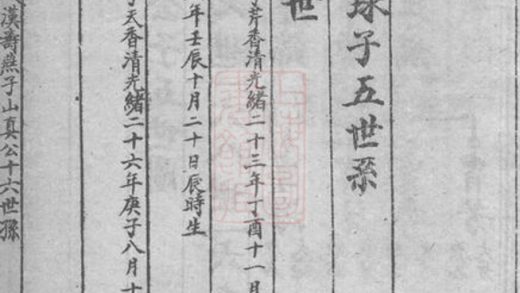 球子五世孫
世
芹香清光緒二十三年丁酉十一月
年壬辰十月二十日辰時生
天香清光緒二十六年庚子八月十
漢壽燕子山真公十六世孫